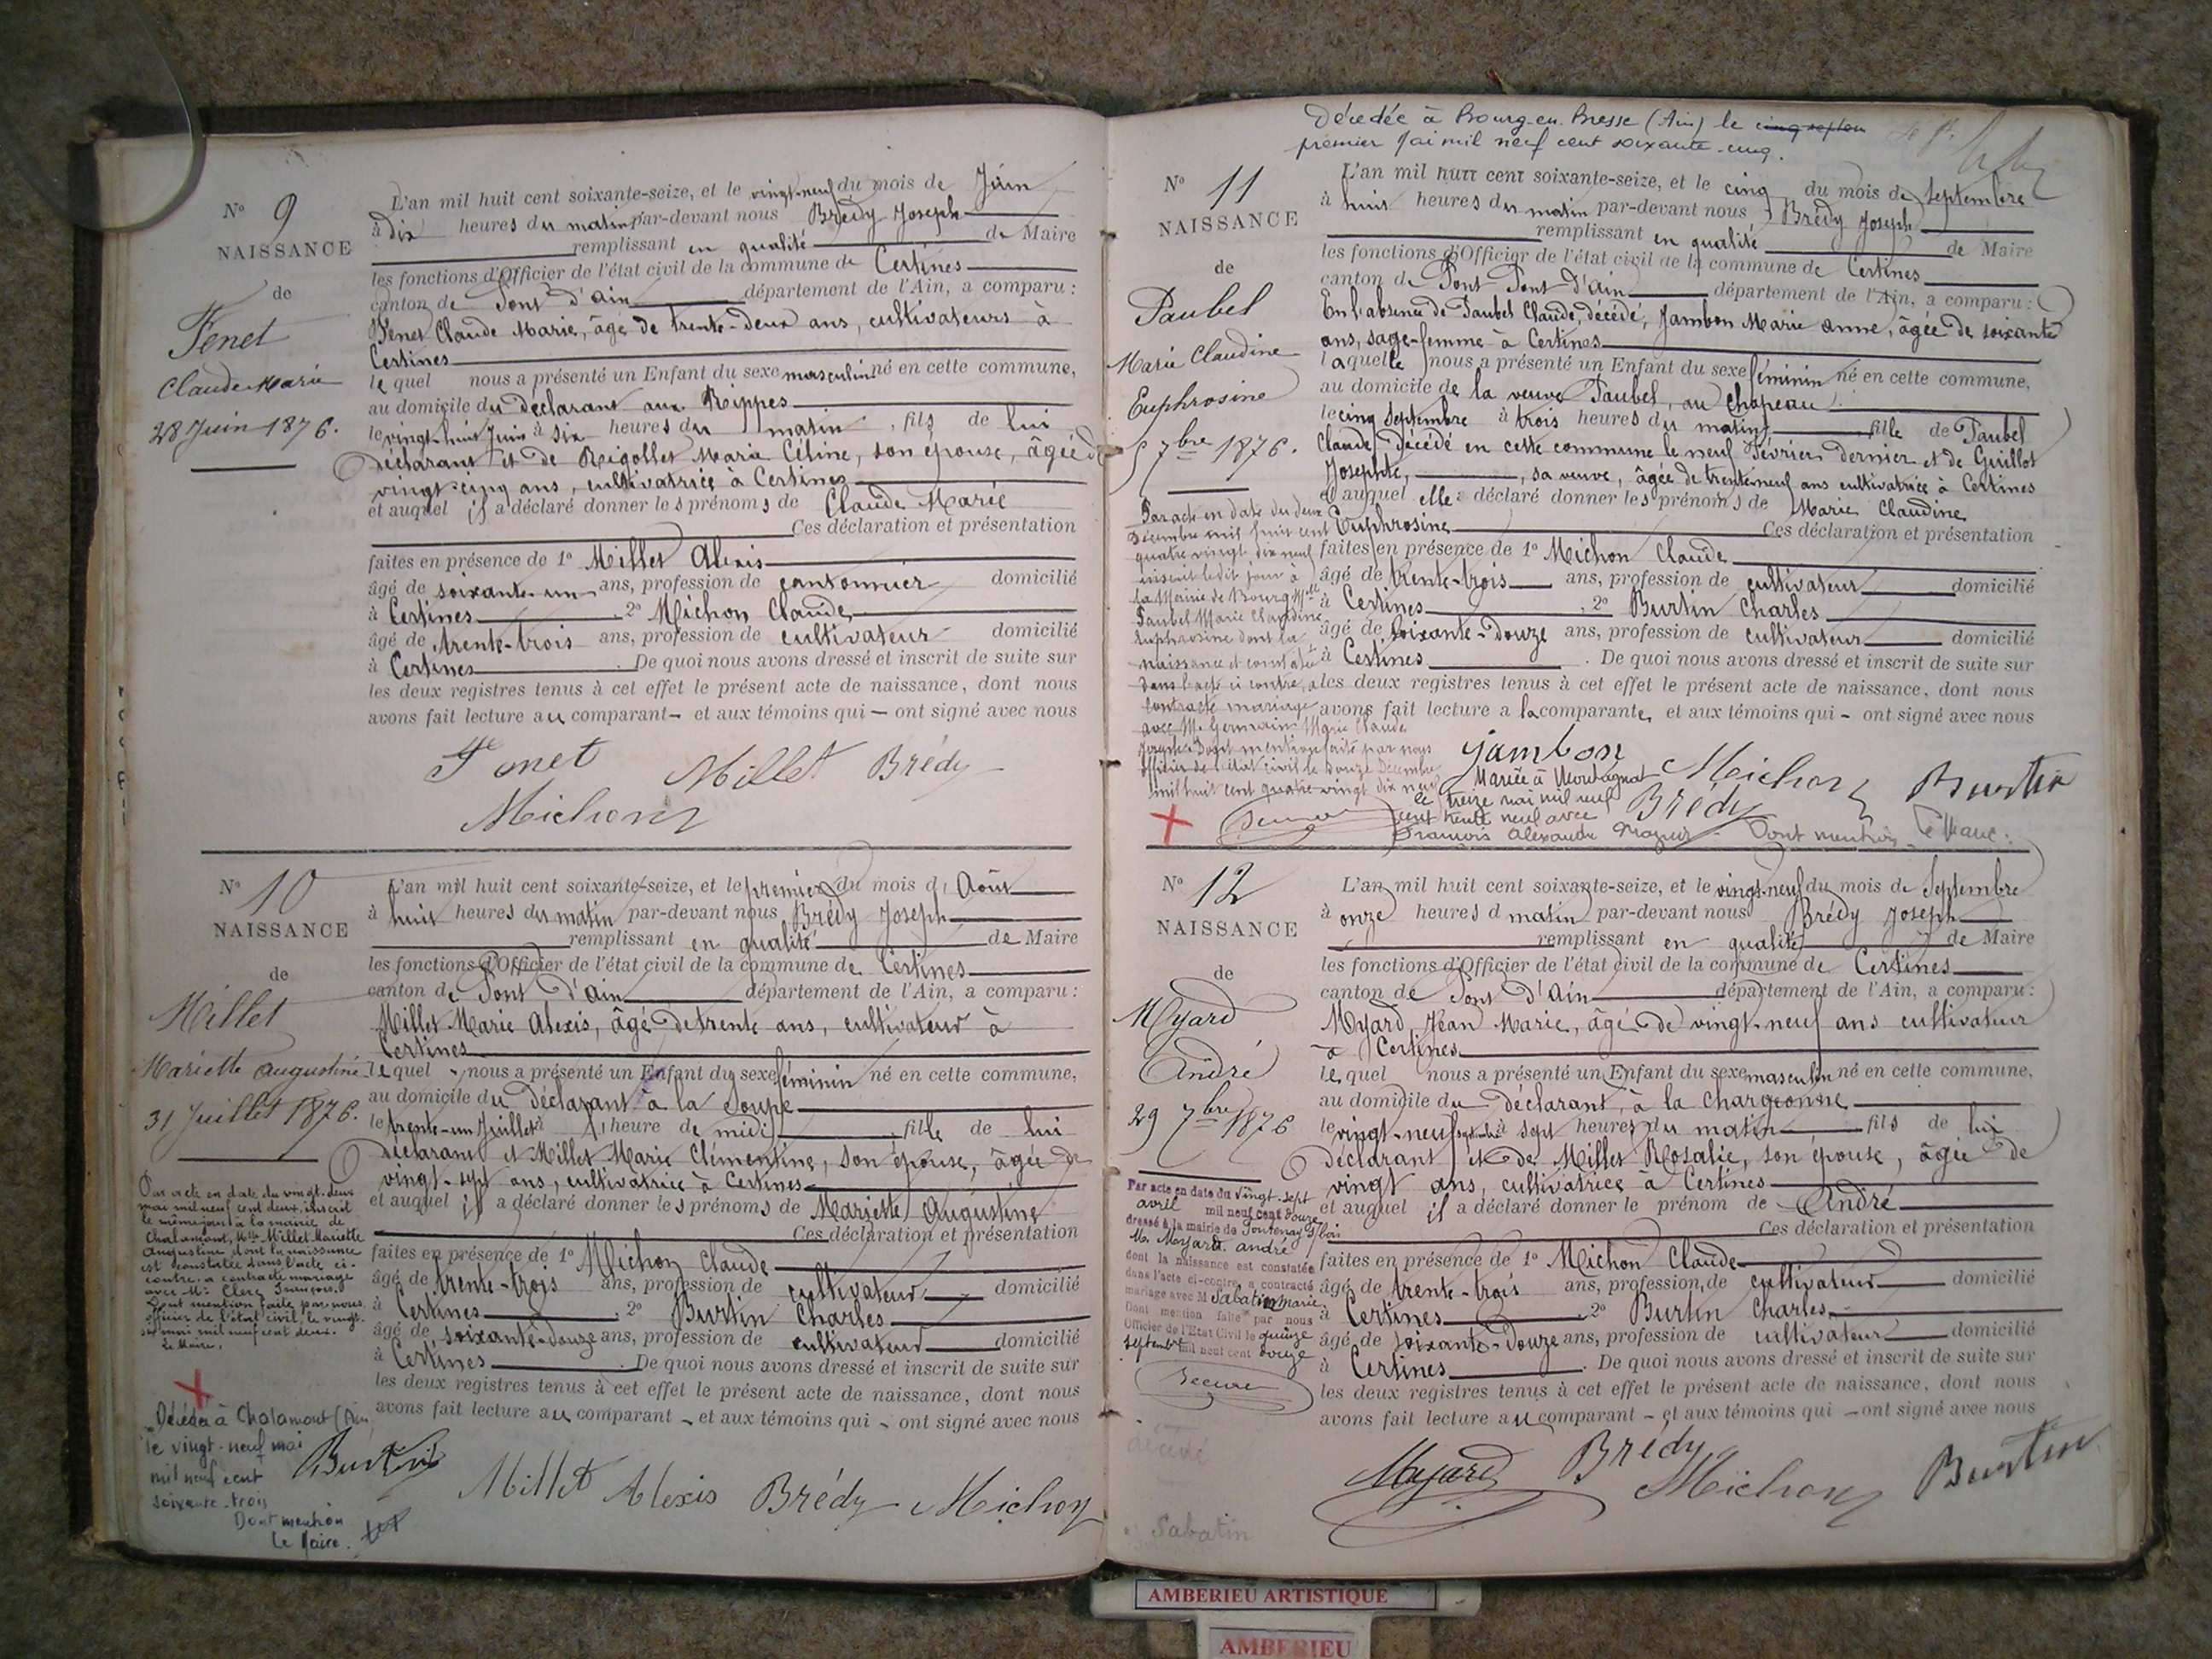 N° 9
NAISSANCE
de
Fenet
Claude Marie
28 Juin 1876.
L'an mil huit cent soixante-seize, et le vingt-neuf du mois de Juin
à dix heures du matin par-devant nous Brédy Joseph
remplissant en qualité de Maire
les fonctions d'Officier de l'état civil de la commune de Certines
canton de Pont d'ain département de l'Ain, a comparu :
Fenet Claude Marie, âgé de trente-deux ans, cultivateurs à
Certines
le quel nous a présenté un Enfant du sexe masculin né en cette commune,
au domicile du déclarant aux Rippes
le vingt-huit Juin à six heures du matin, fils de lui
déclarant et de Rigollet Marie Céline, son épouse, âgée de
vingt-cinq ans, cultivatrice à Certines
et auquel il a déclaré donner les prénoms de Claude Marie
Ces déclaration et présentation
faites en présence de 1° Millet Alexis
âgé de soixante-un ans, profession de cantonnier domicilié
à Certines. 2° Michon Claude
âgé de trente-trois ans, profession de cultivateur domicilié
à Certines. De quoi nous avons dressé et inscrit de suite sur
les deux registres tenus à cet effet le présent acte de naissance, dont nous
avons fait lecture au comparant - et aux témoins qui - ont signé avec nous
Fenet Millet Brédy
Michon
N° 10
NAISSANCE
de
Millet
Mariette Augustine
31 Juillet 1876.
Par acte en date du vingt-deux
mai mil neuf cent deux, inscrit
le même jour à la mairie de
Chalamont, Mlle Millet Mariette
Augustine dont la naissance
est constatée dans l'acte ci-
contre, a contracté mariage
avec Mr Clerc François.
Dont mention faite par nous
officier de l'état civil, le vingt-
six mai mil neuf cent deux.
Le Maire,
Décédée à Chalamont (Ain
le vingt-neuf mai
mil neuf cent
soixante-trois
Dont mention
Le Maire.
L'an mil huit cent soixante-seize, et le premier du mois d'Août
à huit heures du matin par-devant nous Brédy Joseph
remplissant en qualité de Maire
les fonctions d'Officier de l'état civil de la commune de Certines
canton de Pont d'ain département de l'Ain, a comparu :
Millet Marie Alexis, âgé de trente ans, cultivateur à
Certines
le quel nous a présenté un Enfant du sexe féminin né en cette commune,
au domicile du déclarant à la Soupe
le trente-un Juillet à 1 heure de midi, fille de lui
déclarant et Millet Marie Clémentine, son épouse, âgée de
vingt-sept ans, cultivatrice à Certines
et auquel il a déclaré donner les prénoms de Mariette Augustine
Ces déclaration et présentation
faites en présence de 1° Michon Claude
âgé de trente-trois ans, profession de cultivateur domicilié
à Certines. 2° Burtin Charles
âgé de soixante-douze ans, profession de cultivateur domicilié
à Certines. De quoi nous avons dressé et inscrit de suite sur
les deux registres tenus à cet effet le présent acte de naissance, dont nous
avons fait lecture au comparant - et aux témoins qui - ont signé avec nous
Burtin Millet Alexis Brédy Michon
Décédée à Bourg-en-Bresse (Ain) le cinq septem
premier mai mil neuf cent soixante-cinq.
N° 11
NAISSANCE
de
Paubel
Marie Claudine
Euphrosine
5 7bre 1876.
Par acte en date du deux
Décembre mil huit cent
quatre vingt dix neuf
inscrit ledit jour à
la Mairie de Bourg Mlle
Paubel Marie Claudine
Euphrosine dont la
naissance est constatée
dans l'acte ci contre, a
contracté mariage
avec M. Germain Marie Claude
Joseph. Dont mention faite par nous
officier de l'état civil le douze Décembre
mil huit cent quatre vingt dix neuf
L'an mil huit cent soixante-seize, et le cinq du mois de Septembre
à huit heures du matin par-devant nous Brédy Joseph
remplissant en qualité de Maire
les fonctions d'Officier de l'état civil de la commune de Certines
canton de Pont Pont d'ain département de l'Ain, a comparu :
En l'absence de Paubel Claude, décédé, Jambon Marie anne, âgée de soixante
ans, sage-femme à Certines
laquelle nous a présenté un Enfant du sexe féminin né en cette commune,
au domicile de la veuve Paubel, au Chapeau
le cinq Septembre à trois heures du matin, fille de Paubel
Claude décédé en cette commune le neuf Février dernier et de Guillot
Josephte, sa veuve, âgée de trente-neuf ans cultivatrice à Certines
et auquel elle a déclaré donner les prénoms de Marie Claudine
Euphrosine Ces déclaration et présentation
faites en présence de 1° Michon Claude
âgé de trente-trois ans, profession de cultivateur domicilié
à Certines, 2° Burtin Charles
âgé de soixante-douze ans, profession de cultivateur domicilié
à Certines. De quoi nous avons dressé et inscrit de suite sur
les deux registres tenus à cet effet le présent acte de naissance, dont nous
avons fait lecture a la comparante, et aux témoins qui - ont signé avec nous
Jambon Michon Burtin
Brédy
Mariée à Montagnat
le treize mai mil neuf
cent trente neuf avec
François Alexandre Dont mention
N° 12
NAISSANCE
de
Myard
André
29 7bre 1876
Par acte en date du vingt-sept
avril mil neuf cent douze
dressé à la mairie de Fontenay s/bois
M. Myard André
dont la naissance est constatée
dans l'acte ci-contre a contracté
mariage avec M Sabatin Marie
Dont mention faite par nous
Officier de l'Etat Civil le quinze
septembre mil neuf cent douze
décédé
Sabatin
L'an mil huit cent soixante-seize, et le vingt-neuf du mois de Septembre
à onze heures d matin par-devant nous Brédy Joseph
remplissant en qualité de Maire
les fonctions d'Officier de l'état civil de la commune de Certines
canton de Pont d'ain département de l'Ain, a comparu :
Myard Jean Marie, âgé de vingt-neuf ans cultivateur
à Certines
le quel nous a présenté un Enfant du sexe masculin né en cette commune,
au domicile du déclarant, à la Chargeonne
le vingt-neuf septembre à sept heures du matin fils de lui
déclarant et de Millet Rosalie, son épouse, âgée de
vingt ans, cultivatrice à Certines
et auquel il a déclaré donner le prénom de André
Ces déclaration et présentation
faites en présence de 1° Michon Claude
âgé de trente-trois ans, profession de cultivateur domicilié
à Certines. 2° Burtin Charles
âgé de soixante-douze ans, profession de cultivateur domicilié
à Certines. De quoi nous avons dressé et inscrit de suite sur
les deux registres tenus à cet effet le présent acte de naissance, dont nous
avons fait lecture au comparant - et aux témoins qui - ont signé avec nous
Myard Brédy Michon Burtin
AMBERIEU ARTISTIQUE
AMBERIEU